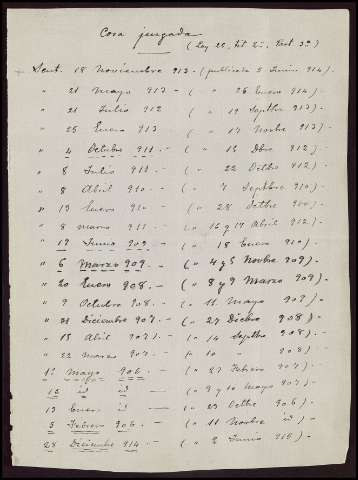 Cosa juzgada
(Ley 25, Tit 2º, Part 3ª)
Sent. 18 Noviembre 913 - (publicada 5 Junio 914).
" 21 Mayo 913 - ( " 26 Enero 914) -
" 21 Julio 912 ( " 19 Septbre 913) -
" 25 Enero 913 ( " 17 Novbre 913) -
" 4 Octubre 911 - ( " 15 Dbre 912) -
" 8 Julio 911 - ( " 22 Octbre 912) -
" 8 Abril 910 - ( " 7 Septbre 910) -
" 13 Enero 910 - ( " 28 Octbre 910) -
" 8 marzo 911 - ( " 16 y 17 Abril 912) -
" 17 Junio 909 - ( " 18 Enero 910) -
" 6 Marzo 909 - ( " 4 y 5 Novbre 909) -
" 20 Enero 908 - ( " 8 y 9 Marzo 909) -
" 9 Octubre 908 - ( " 11 Mayo 909) -
" 31 Diciembre 907 - ( " 27 Dicbre 908) -
" 15 Abril 907 - ( " 14 Septbre 908) -
" 22 marzo 907 - ( " 10 " 908) -
11 Mayo 906 - ( " 27 Febrero 907) -
16 id id - ( " 9 y 10 Mayo 907) -
13 Enero id - ( " 23 Octbre 906) -
5 Febrero 906 - ( " 11 Novbre id) -
28 Diciembre 914 - ( " 2 Junio 915) -